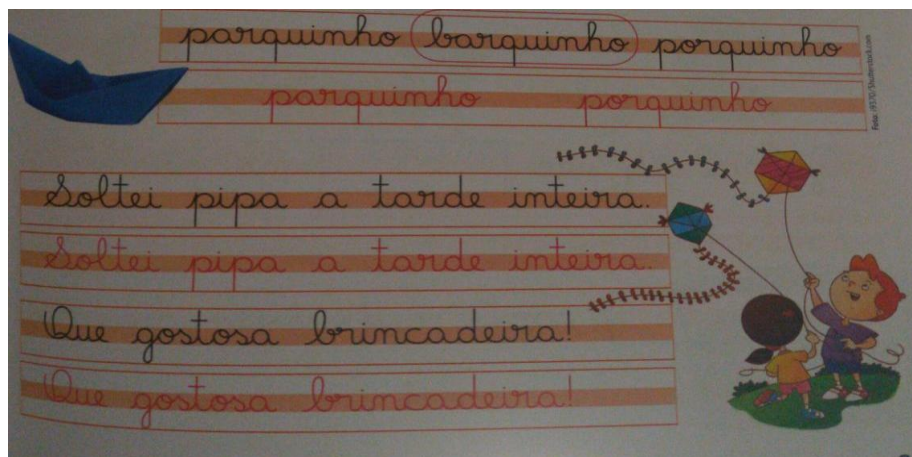 parquinho barquinho porquinho
parquinho porquinho
Soltei pipa a tarde inteira.
Soltei pipa a tarde inteira.
Que gostosa brincadeira!
Que gostosa brincadeira!